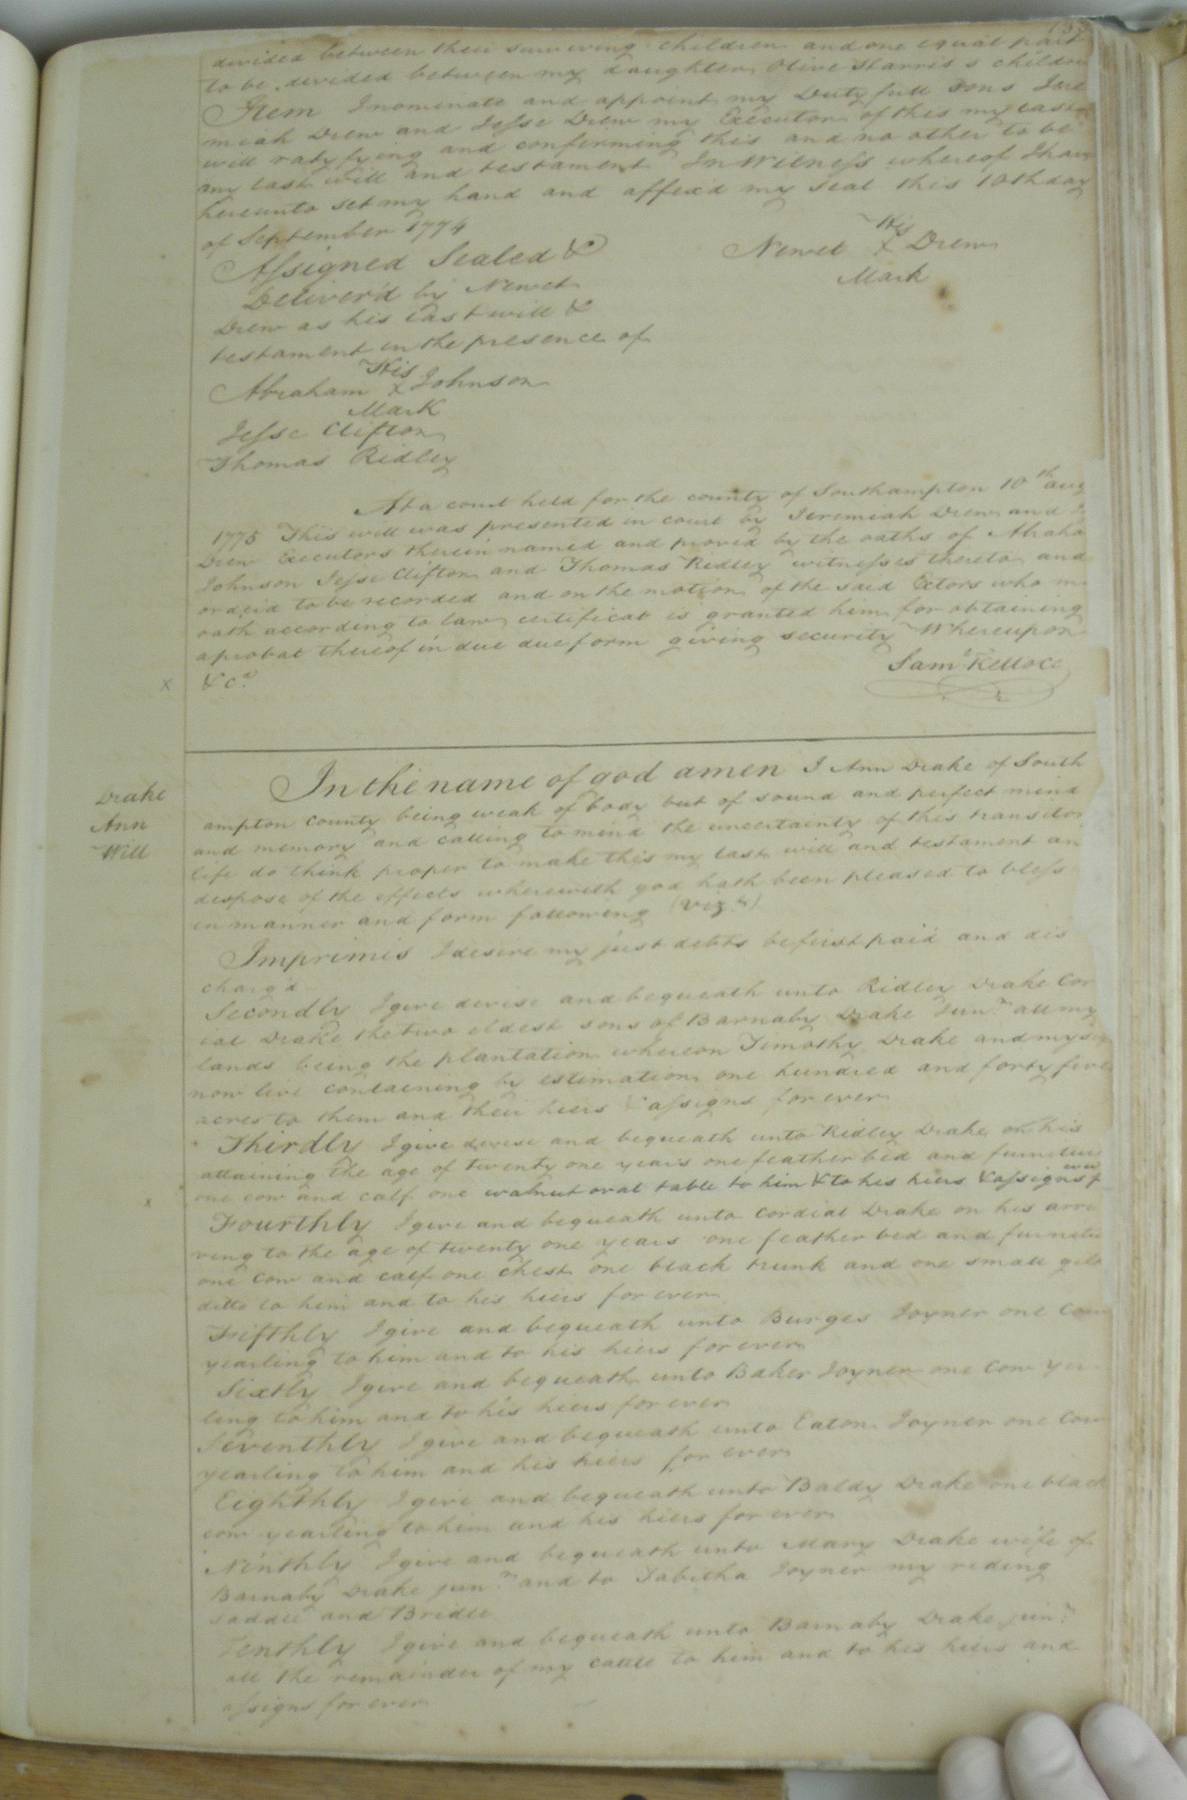 divided between their surviving children and one equal part
to be divided between my daughter Olive Harris s children
Item I nominate and appoint my Dutyfull Sons Jere
miah Drew and Jesse Drew my Executors of this my last
will ratyfying and confirming this and no other to be
my last will and testament In Witness whereof I have
hereunto set my hand and affix'd my seal this 10th day
of September 1774
His
Newet x Drew
Mark
Assigned Sealed &
Deliver'd by Newet
Drew as his last will &
testament in the presence of
His
Abraham x Johnson
Mark
Jesse Clifton
Thomas Ridley
At a court held for the county of Southampton 10th aug
1775 This will was presented in court by Jeremiah Drew and J
Drew Executors therein named and proved by the oaths of Abraha
Johnson Jesse Clifton and Thomas Ridley witnesses thereto and
order'd to be recorded and on the motion of the said Extors who m
oath according to law certificat is granted him for obtaining
a probat thereof in due due form giving security Whereupon
&c.
Saml Kelloce
Drake
Ann
Will
In the name of god amen I Ann Drake of South
ampton county being weak of body but of sound and perfect mind
and memory and calling to mind the uncertainty of this transitor
life do think proper to make this my last will and testament an
despose of the effects wherewith god hath been pleased to bless
in manner and form following (viz.t)
Imprimis I desire my just debts be first paid and dis
charg'd
Secondly I give devise and bequeath unto Ridley Drake Cor
ial Drake the two eldest sons of Barnaby Drake Junr all my
lands being the plantation whereon Timothy Drake and myse
now live containing by estimation one hundred and forty five
acres to them and their heirs & assigns for ever
Thirdly I give devise and bequeath unto Ridley Drake on his
attaining the age of twenty one years one feather bed and furnitur
one cow and calf one walnut oval table to him & to his heirs & assigns f ever
Fourthly I give and bequeath unto Cordial Drake on his arri
ving to the age of twenty one years one feather bed and furnitu
one cow and calf one chest one black trunk and one small gilt
ditto to him and to his heirs for ever
Fifthly I give and bequeath unto Burges Joyner one cow
yearling to him and to his heirs for ever
Sixtly I give and bequeath unto Baker Joyner one cow yea
ling to him and to his heirs for ever
Seventhly I give and bequeath unto Eaton Joyner one cow
yearling to him and his heirs for ever
Eighthly I give and bequeath unto Baldy Drake one black
cow yearling to him and his heirs for ever
Ninthly I give and bequeath unto Mary Drake wife of
Barnaby Drake junr and to Tabitha Joyner my riding
saddle and Bridle
Tenthly I give and bequeath unto Barnaby Drake junr
all the remainder of my cattle to him and to his heirs and
assigns for ever